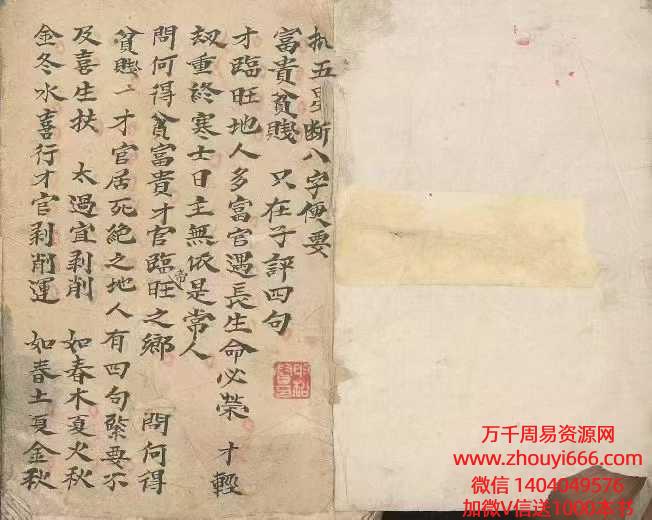 批五星断八字便要
富貴貧賤 只在子評四句
才臨旺地人多富官遇長生命必荣 才輕
刼重終寒士日主無依是常人
問何得貧富貴才官臨帝旺之鄉 問何得
貧賤二才官居死絶之地人有四句緊要不
及喜生扶 太過宜剥削 如春木夏火秋
金冬水喜行才官剥削運 如春土夏金秋
万千周易资源网
www.zhouyi666.com
微信 1404049576
加微V信送1000本书